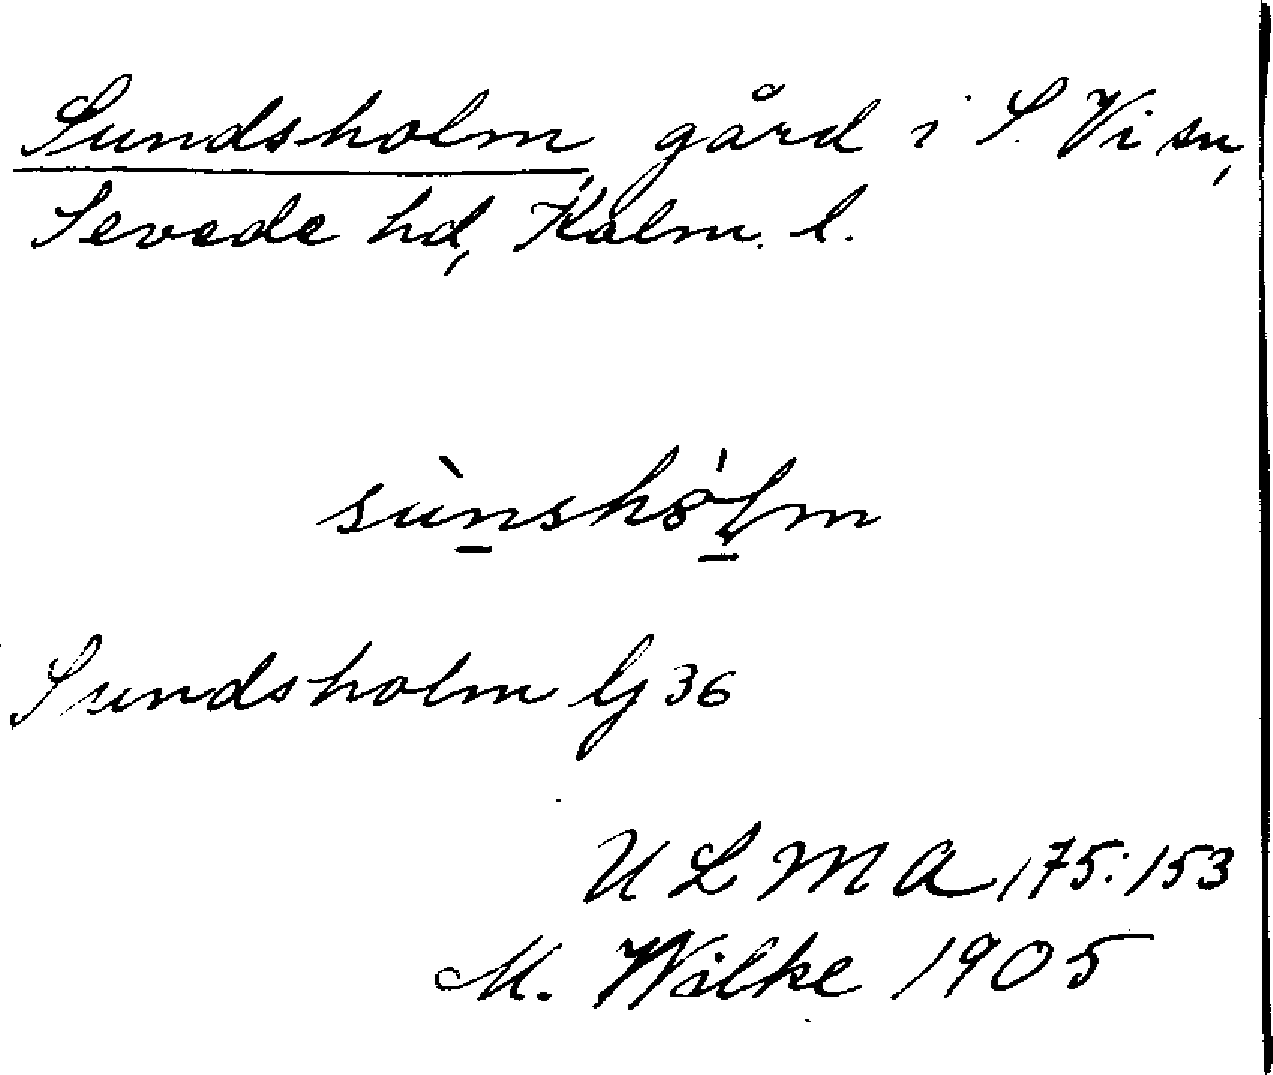 Sundsholm, gård i S. Vi sn,
Sevede hd, Kalm. l.
sùn̲shö́l̲m
Sundsholm Gj 36
ULMA 175:153
M. Wilke 1905